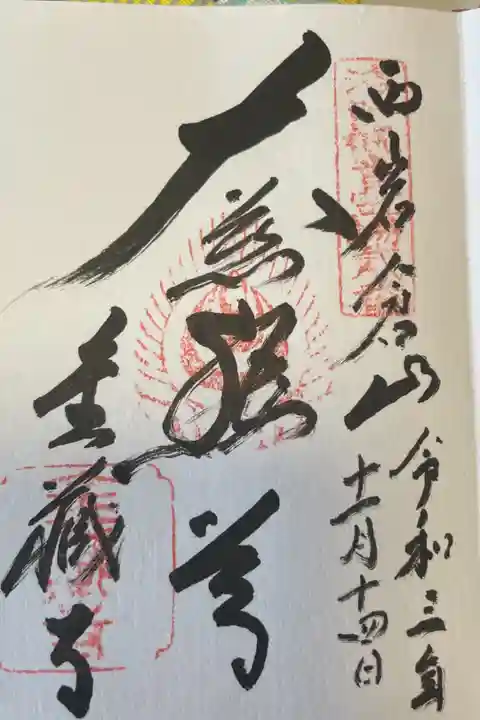 西岩倉山
令和三年
十一月十四日
大慈
金蔵寺